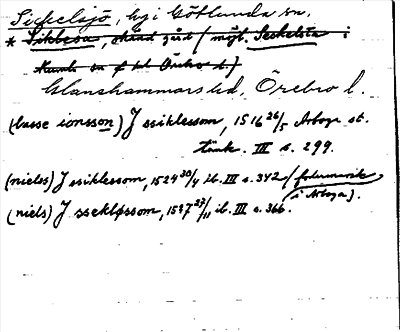 Sickelsjö, by i Götlunda sn.
* Sikbesa, okänd gård / möjl. Seckelsta i
Kumla sn f fel Örebro l.)
Glanshammars hd, Örebro l.
(lasse ionsson) J ssiklessom, 1516 26/5 Arboga st.
tänk. III s. 299.
(nielss) J ssiklessom, 1524 30/4 ib. III s. 342 / fodermarsk
i Arboga).
(niels) J ssekløssom, 1537 27/11 ib. III s. 366.